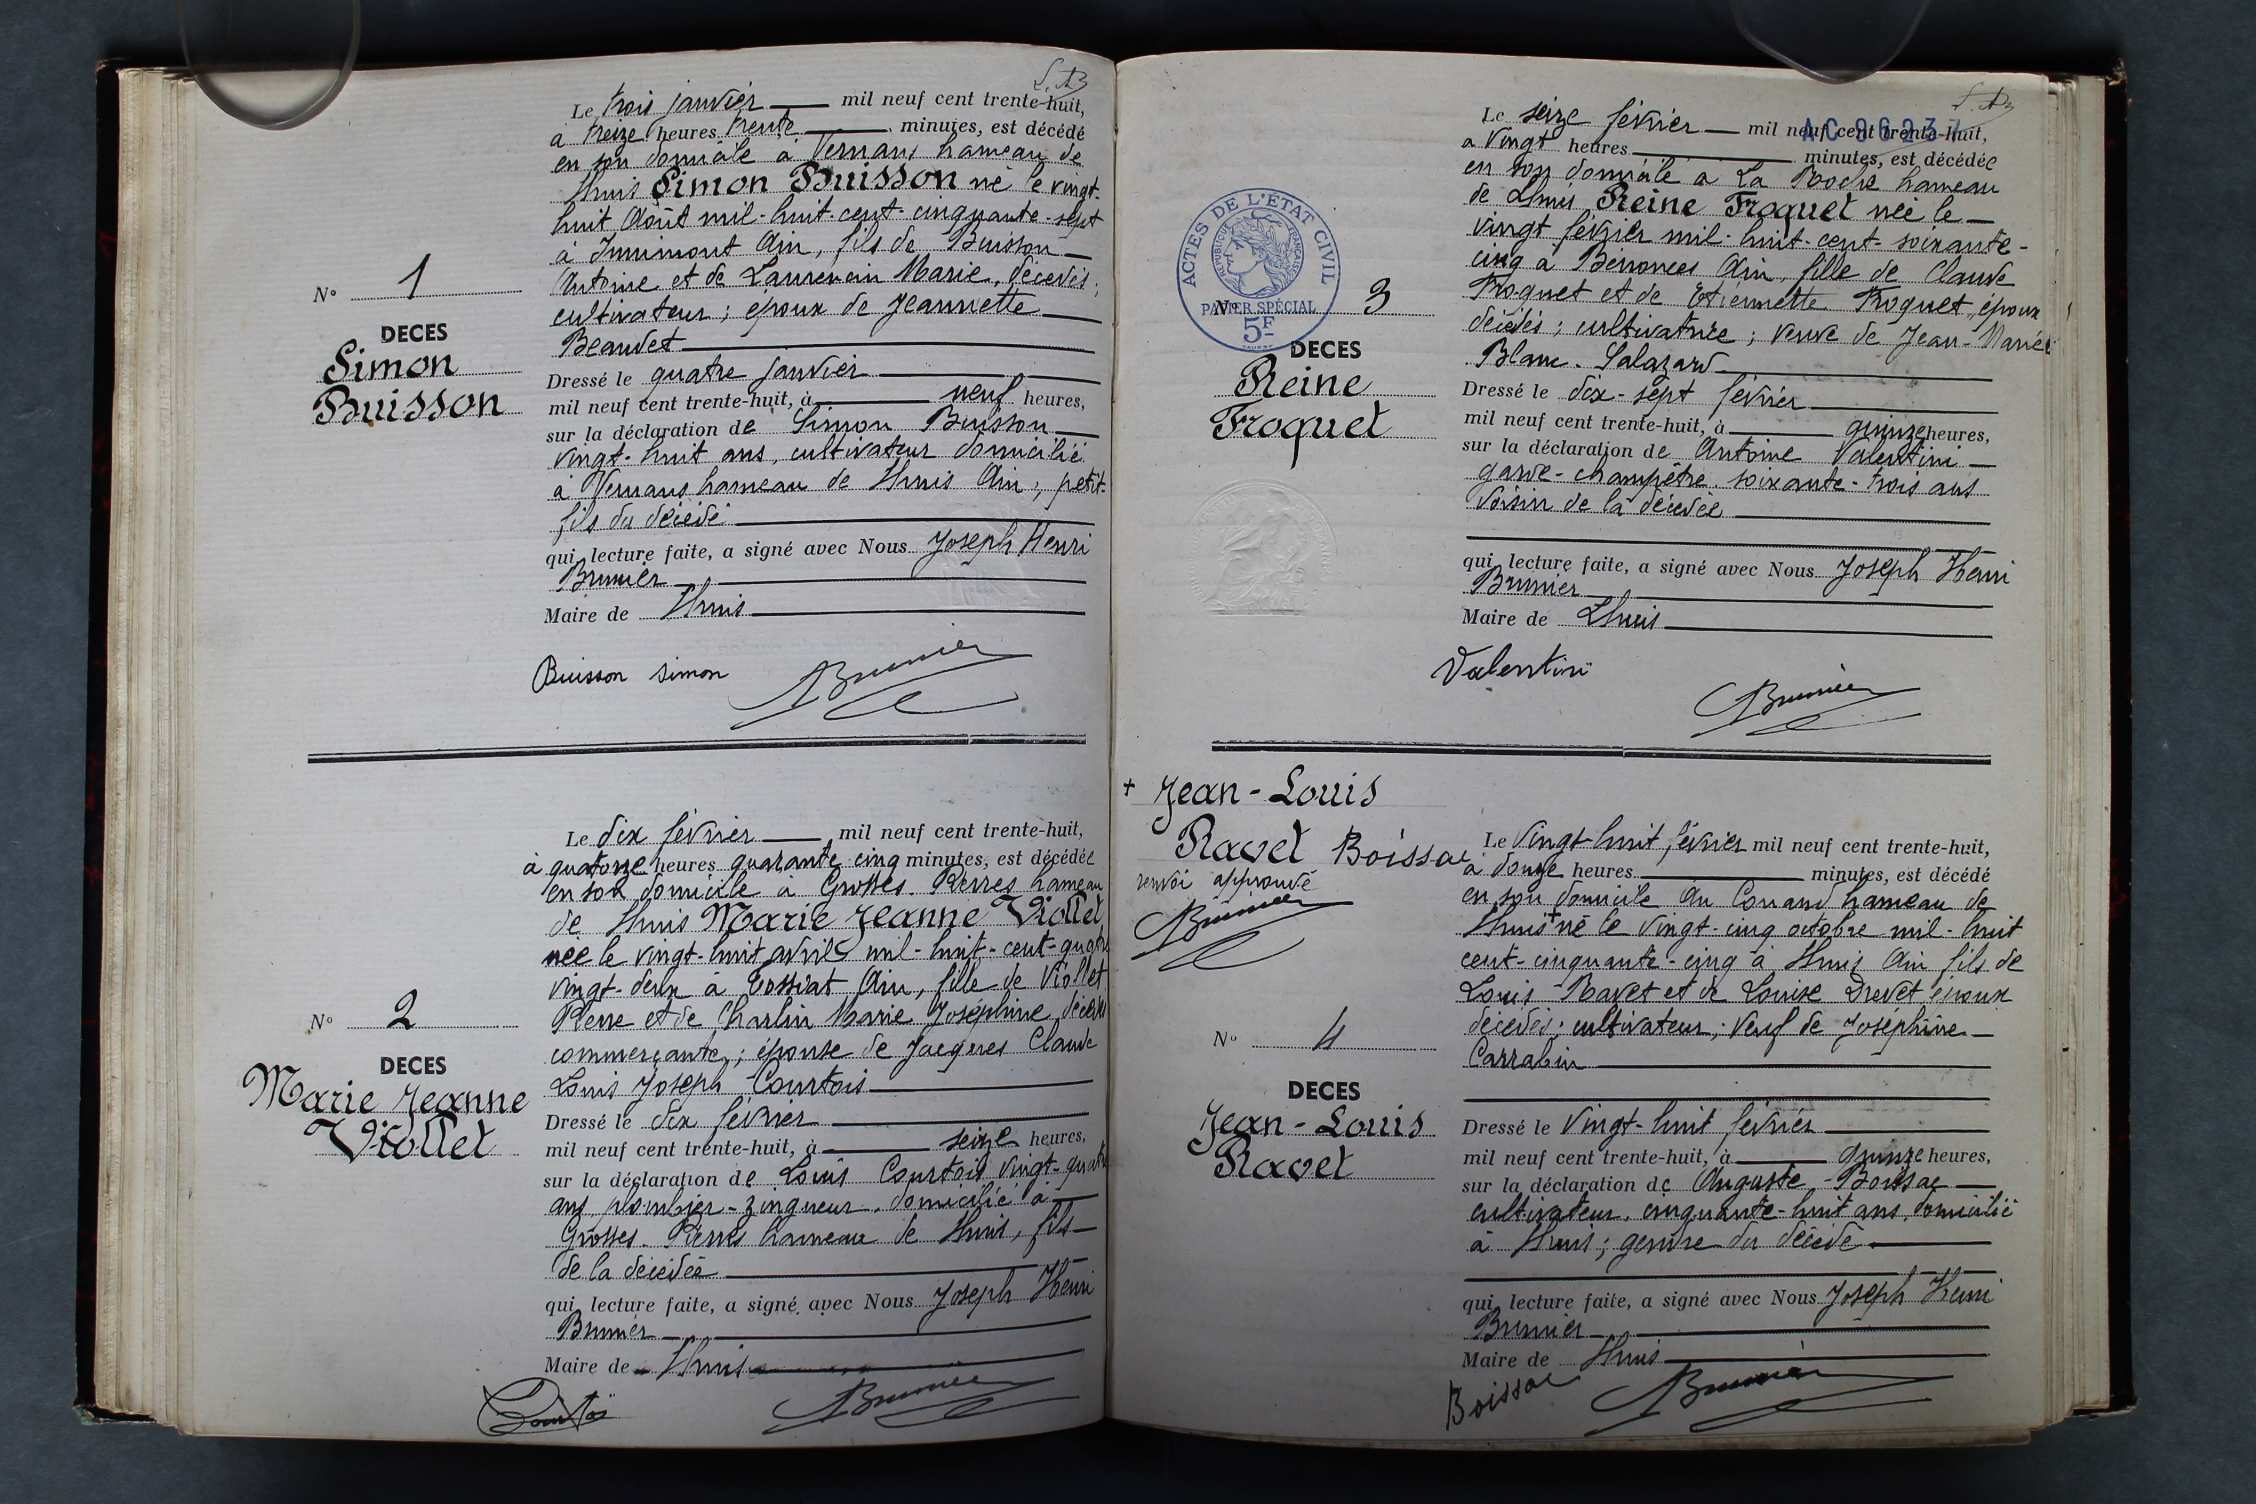 Le trois janvier mil neuf cent trente-huit,
a treize heures trente minutes, est décédé
en son domicile à Vernans hameau de
Lhuis Simon Buisson né le vingt-
huit Août mil-huit-cent-cinquante-sept
à Innimont Ain, fils de Buisson
Antoine et de Laurencin Marie, décédés;
cultivateur; époux de Jeannette
Beaudet
Nº 1
DECES
Simon
Buisson
Dressé le quatre janvier
mil neuf cent trente-huit, à neuf heures,
sur la déclaration de Simon Buisson
vingt-huit ans, cultivateur domicilié
à Vernans hameau de Lhuis Ain; petit-
fils du décédé
qui, lecture faite, a signé avec Nous Joseph Henri
Brunier
Maire de Lhuis
Buisson Simon Brunier
Le dix février mil neuf cent trente-huit,
à quatorze heures quarante cinq minutes, est décédée
en son domicile à Grosses-Pierres hameau
de Lhuis Marie Jeanne Viollet
née le vingt-huit avril mil-huit-cent-quatre
vingt-deux à Tossiat Ain, fille de Viollet
Pierre et de Charlin Marie Joséphine, décédés
commerçante; épouse de Jacques Claude
Louis Joseph Courtois
Nº 2
DECES
Marie Jeanne
Viollet
Dressé le dix février
mil neuf cent trente-huit, à seize heures,
sur la déclaration de Louis Courtois vingt-quatre
ans, plombier-zingueur, domicilié à
Grosses-Pierres hameau de Lhuis, fils
de la décédée
qui, lecture faite, a signé avec Nous Joseph Henri
Brunier
Maire de Lhuis
Courtois Brunier
Le seize février mil neuf cent trente-huit,
a vingt heures minutes, est décédée
en son domicile à La Roche hameau
de Lhuis Reine Froquet née le
vingt février mil-huit-cent-soixante-
cinq a Benonces Ain, fille de Claude
Froquet et de Etiennette Froquet, époux
décédés; cultivatrice; veuve de Jean-Marie
Blanc-Salazard
ACTES DE L'ÉTAT CIVIL
RÉPUBLIQUE FRANÇAISE
PAPIER SPÉCIAL
5F
Nº 3
DECES
Reine
Froquet
Dressé le dix-sept février
mil neuf cent trente-huit, à quinze heures,
sur la déclaration de Antoine Valentini
garde-champêtre, soixante-trois ans
voisin de la décédée
qui, lecture faite, a signé avec Nous Joseph Henri
Brunier
Maire de Lhuis
Valentini Brunier
+ Jean-Louis
Ravet Boissac
renvoi approuvé
Brunier
Le vingt-huit février mil neuf cent trente-huit,
à douze heures minutes, est décédé
en son domicile au Couand hameau de
Lhuis + né le vingt-cinq octobre mil-huit
cent-cinquante-cinq à Lhuis Ain fils de
Louis Ravet et de Louise Drevet, époux
décédés; cultivateur; veuf de Joséphine
Carrabin
Nº 4
DECES
Jean-Louis
Ravet
Dressé le vingt-huit février
mil neuf cent trente-huit, à quinze heures,
sur la déclaration de Auguste Boissac
cultivateur, cinquante-huit ans, domicilié
à Lhuis; gendre du décédé
qui, lecture faite, a signé avec Nous Joseph Henri
Brunier
Maire de Lhuis
Boissac Brunier